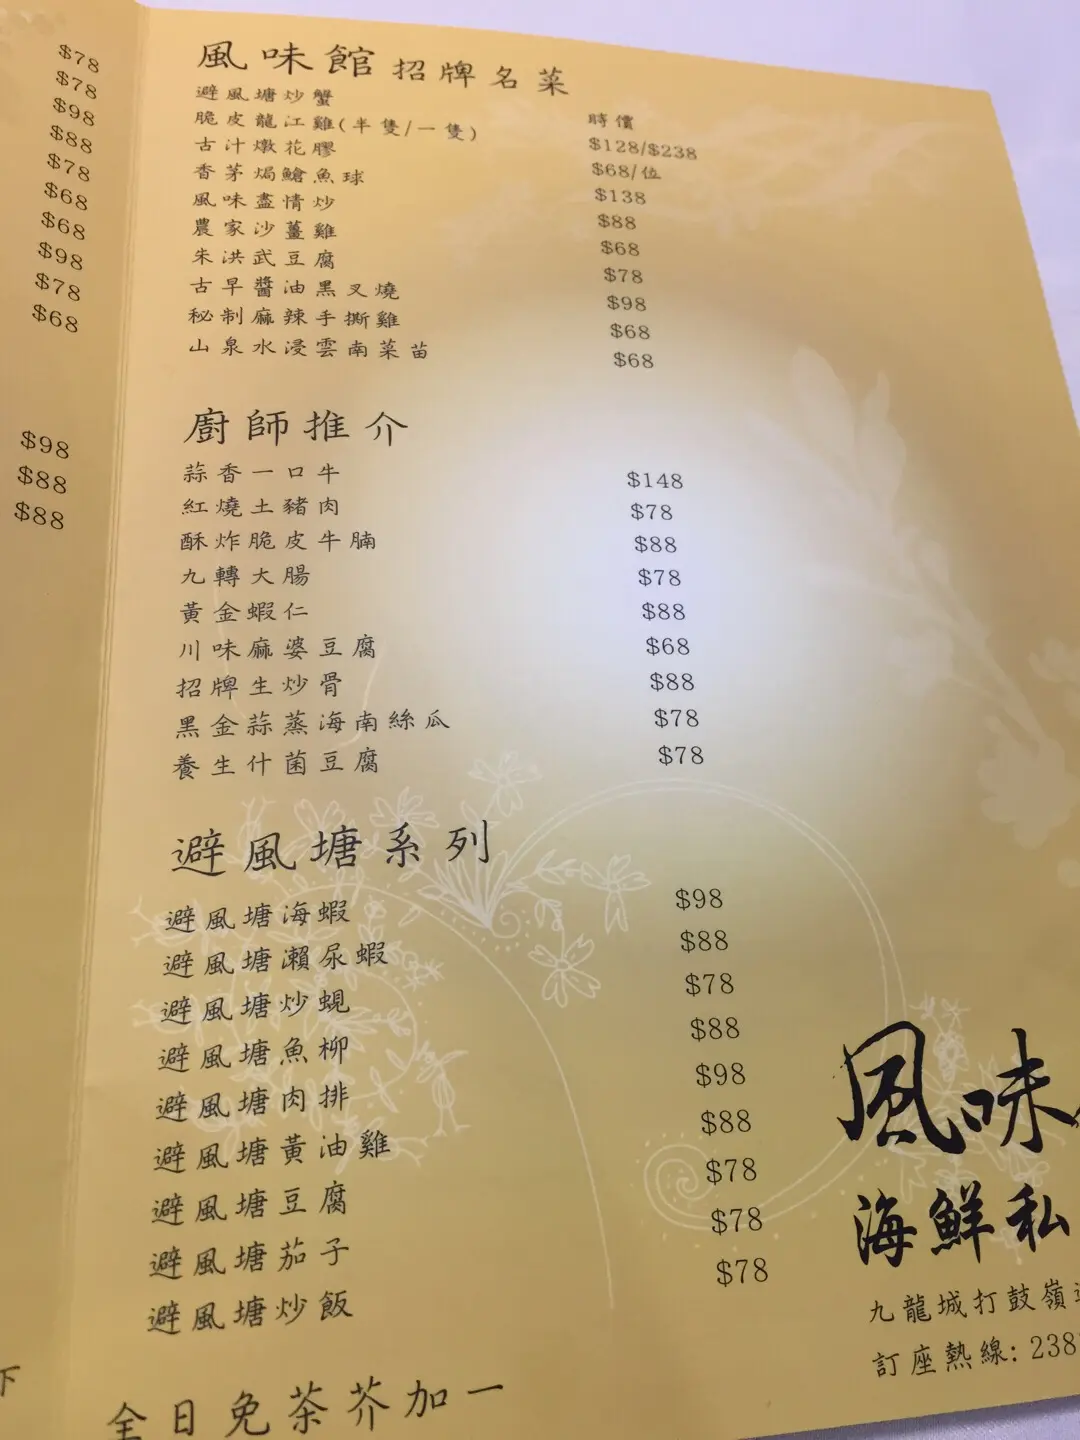 $78
$78
$98
$88
$78
$68
$68
$98
$78
$68
$98
$88
$88
下
風味館招牌名菜
避風塘炒蟹 時價
脆皮龍江雞(半隻/一隻) $128/$238
古汁燉花膠 $68/位
香茅焗鱠魚球 $138
風味盡情炒 $88
農家沙薑雞 $68
朱洪武豆腐 $78
古早醬油黑叉燒 $98
秘制麻辣手撕雞 $68
山泉水浸雲南菜苗 $68
廚師推介
蒜香一口牛 $148
紅燒土豬肉 $78
酥炸脆皮牛腩 $88
九轉大腸 $78
黃金蝦仁 $88
川味麻婆豆腐 $68
招牌生炒骨 $88
黑金蒜蒸海南絲瓜 $78
養生什菌豆腐 $78
避風塘系列
避風塘海蝦 $98
避風塘瀨尿蝦 $88
避風塘炒蜆 $78
避風塘魚柳 $88
避風塘肉排 $98
避風塘黃油雞 $88
避風塘豆腐 $78
避風塘茄子 $78
避風塘炒飯 $78
全日免茶芥加一
風味
海鮮私
九龍城打鼓嶺
訂座熱線: 238